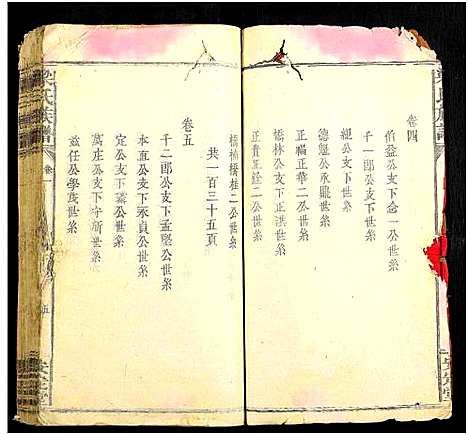 卷四
伯益公支下念一公世系
千一郎公支下
總公支下
德魁公承顯世系
正福正華二公世系
橋林公支下正洪世系
正貴正銓二公世系
橋梓橋桂二公世系
共一百三十五頁
卷五
千二郎公支下孟堅公世系
本直公支下永貞公世系
定公支下公世系
萬庄公支下守新世系
益任公學茂世系
梁氏族譜
卷
五
安定堂